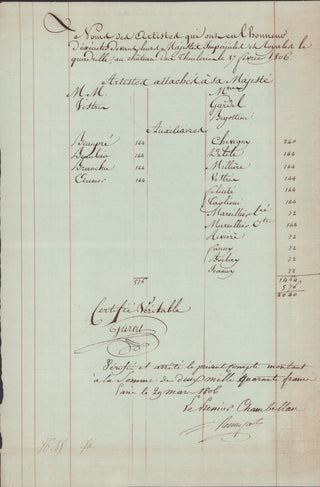 Noms des Artistes qui ont eu l'honneur
d'executer devant leurs Majestés Imperiales et Royales le
quadrille, au château des Thuileries le 17 fevrier 1806
Artistes attachés à sa Majesté
M M
Mmes
Vestris
Gardel
Bigottini
Auxiliaires
Beaupré 144
Chevigny 240
Beaulieu 144
144
Branchu 144
Millière 144
144
Vestris 144
Felicité 144
Taglioni 144
Mareillier 72
Mareillier 72
Riviere 72
Fanny 72
72
72
576
1464
576
2040
Certifié Véritable
Gardel
Vérifié et arrêté le présent compte montant
à la Somme de deux mille quarante francs
Paris le 29 mars 1806
Le Premier Chambellan